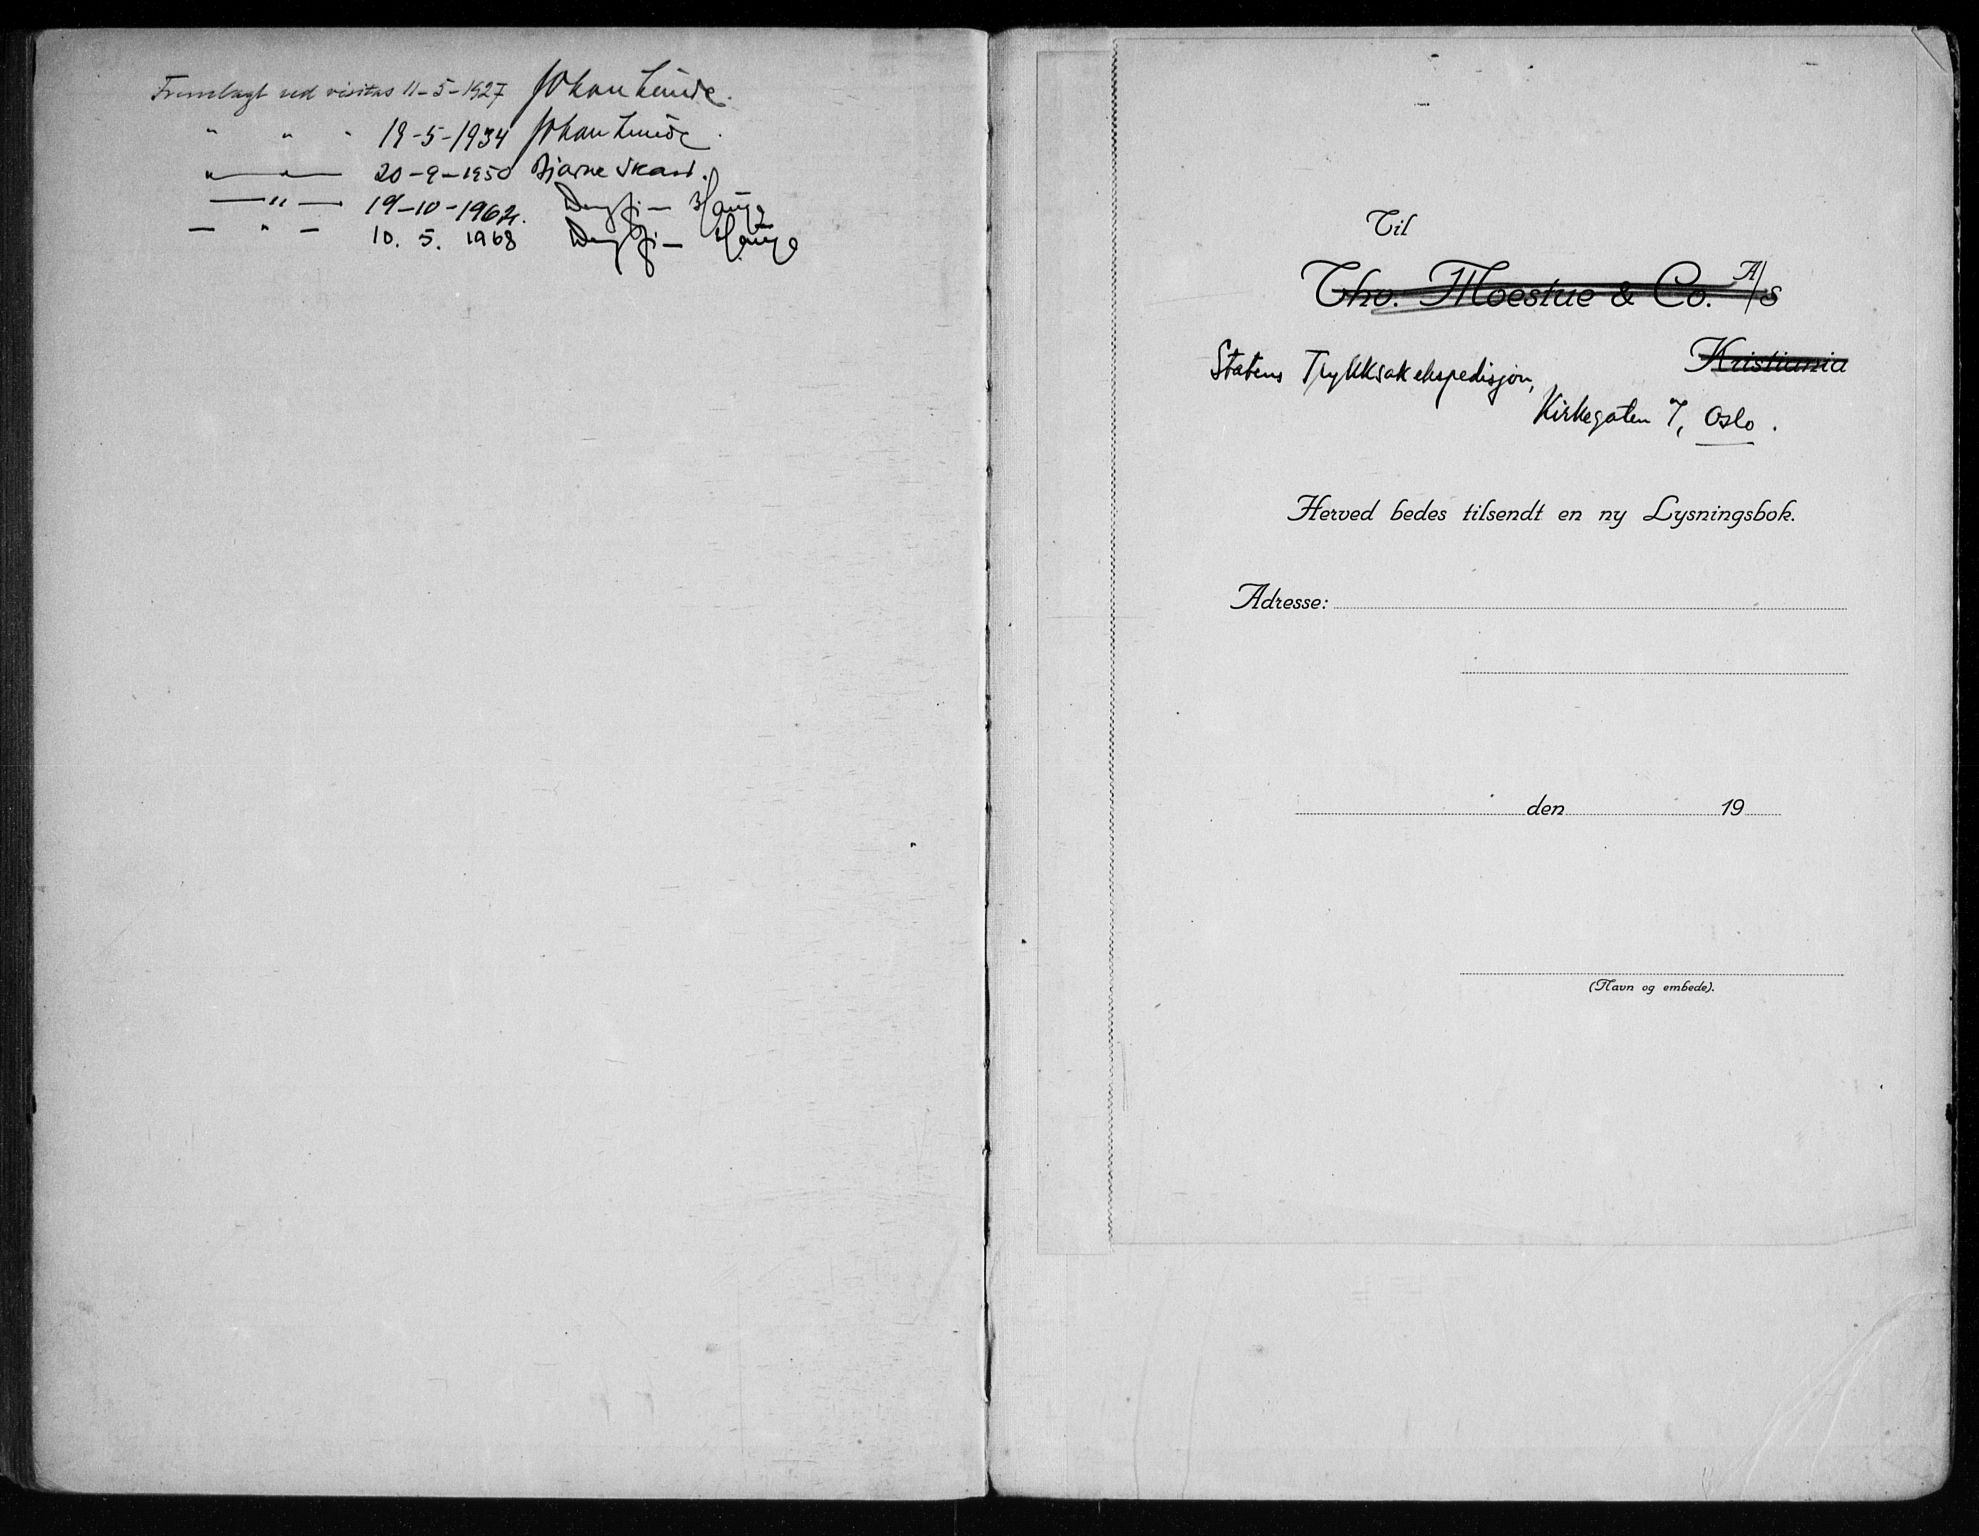 Fremlagt ved visitas 11-5-1927 Johan Lunde.
" " " 19-5-1934 Johan Lunde.
" " 20-9-1950 Bjarne Skard.
" 19-10-1962. Hauge
" 10. 5. 1968 Hauge
Til
Tho. Moestue & Co. A/S
Kristiania
Statens Trykksakekspedisjon,
Kirkegaten 7, Oslo.
Herved bedes tilsendt en ny Lysningsbok.
Adresse:
den 19
(Navn og embede).